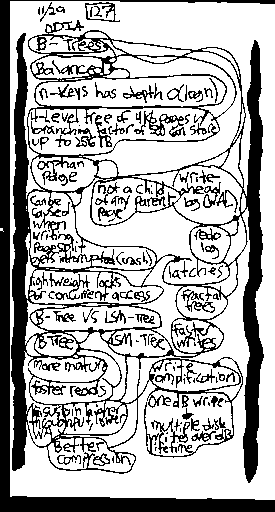 11/29 127
DDIA
B-Trees
Balanced
n-Keys has depth O(logn)
4-Level tree of 4KB pages w/
branching factor of 500 can store
up to 256 TB
orphan
page
not a child
of any parent
page
write-
ahead
log (WAL)
can be
caused
when
writing
page split
gets interrupted (crash)
redo
log
latches
lightweight locks
for concurrent access
fractal
trees
B-Tree VS LSM-Tree
B-Tree
LSM-Tree
faster
writes
more mature
faster reads
write
amplification
can sustain higher
throughput, lower
WA
one DB write
multiple disk
writes over its
lifetime
Better
compression